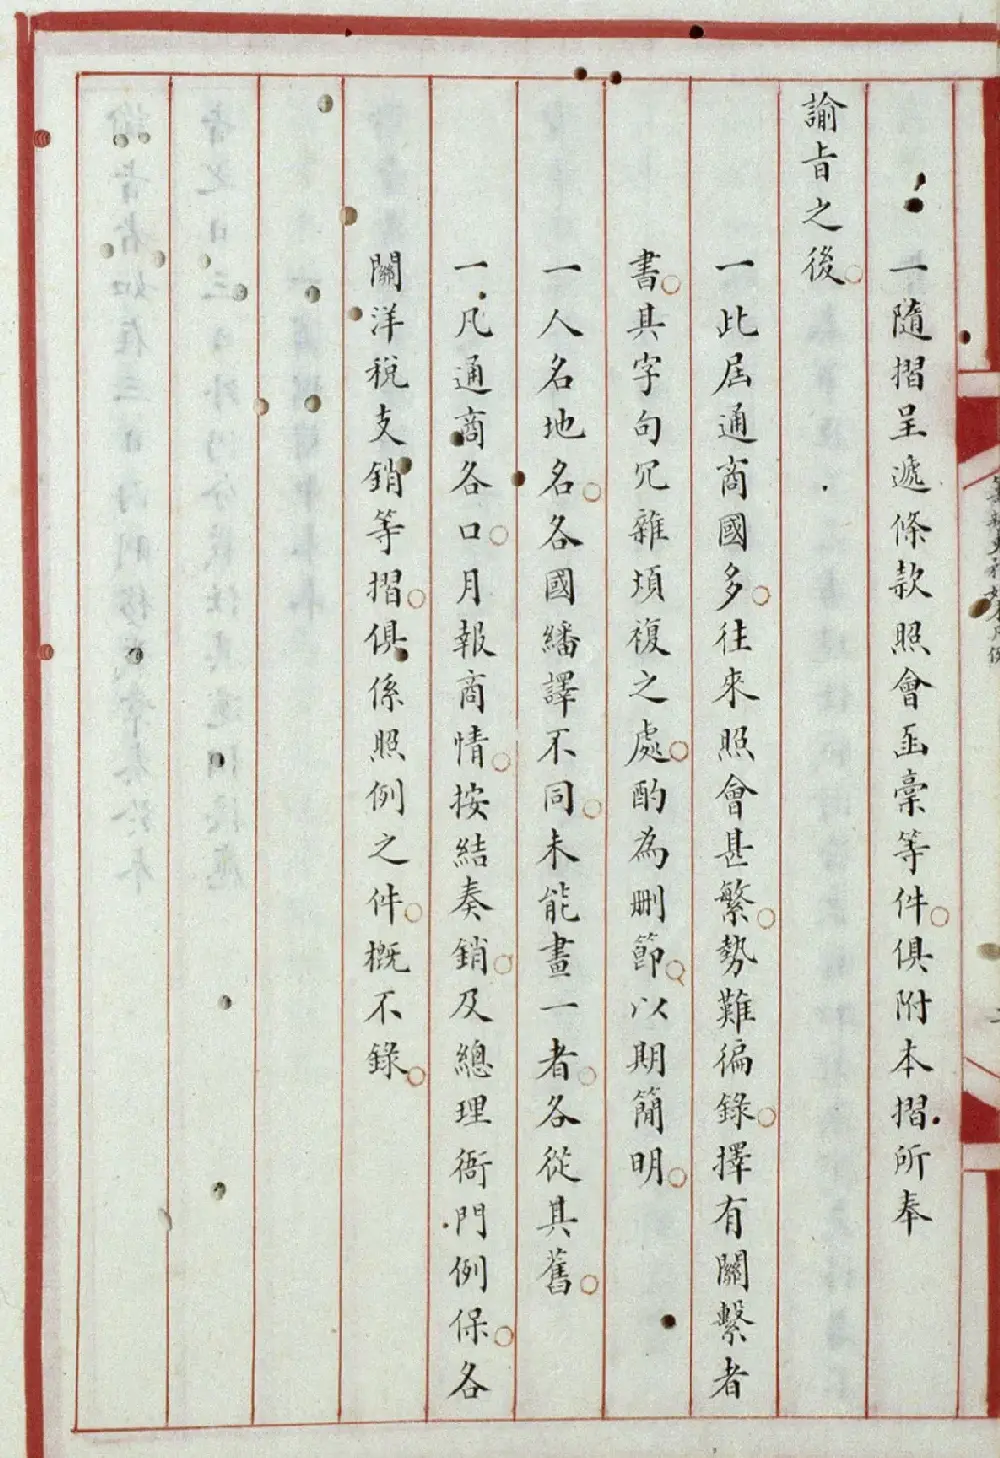 一隨摺呈遞條款照會函稾等件。俱附本摺所奉
諭旨之後。
一此屆通商國多。往來照會甚繁。勢難徧錄。擇有關繫者
書。其字句冗雜煩複之處。酌為刪節。以期簡明。
一人名地名。各國繙譯不同。未能畫一者。各從其舊。
一凡通商各口。月報商情。按結奏銷。及總理衙門例保。各
關洋稅支銷等摺。俱係照例之件。概不錄。